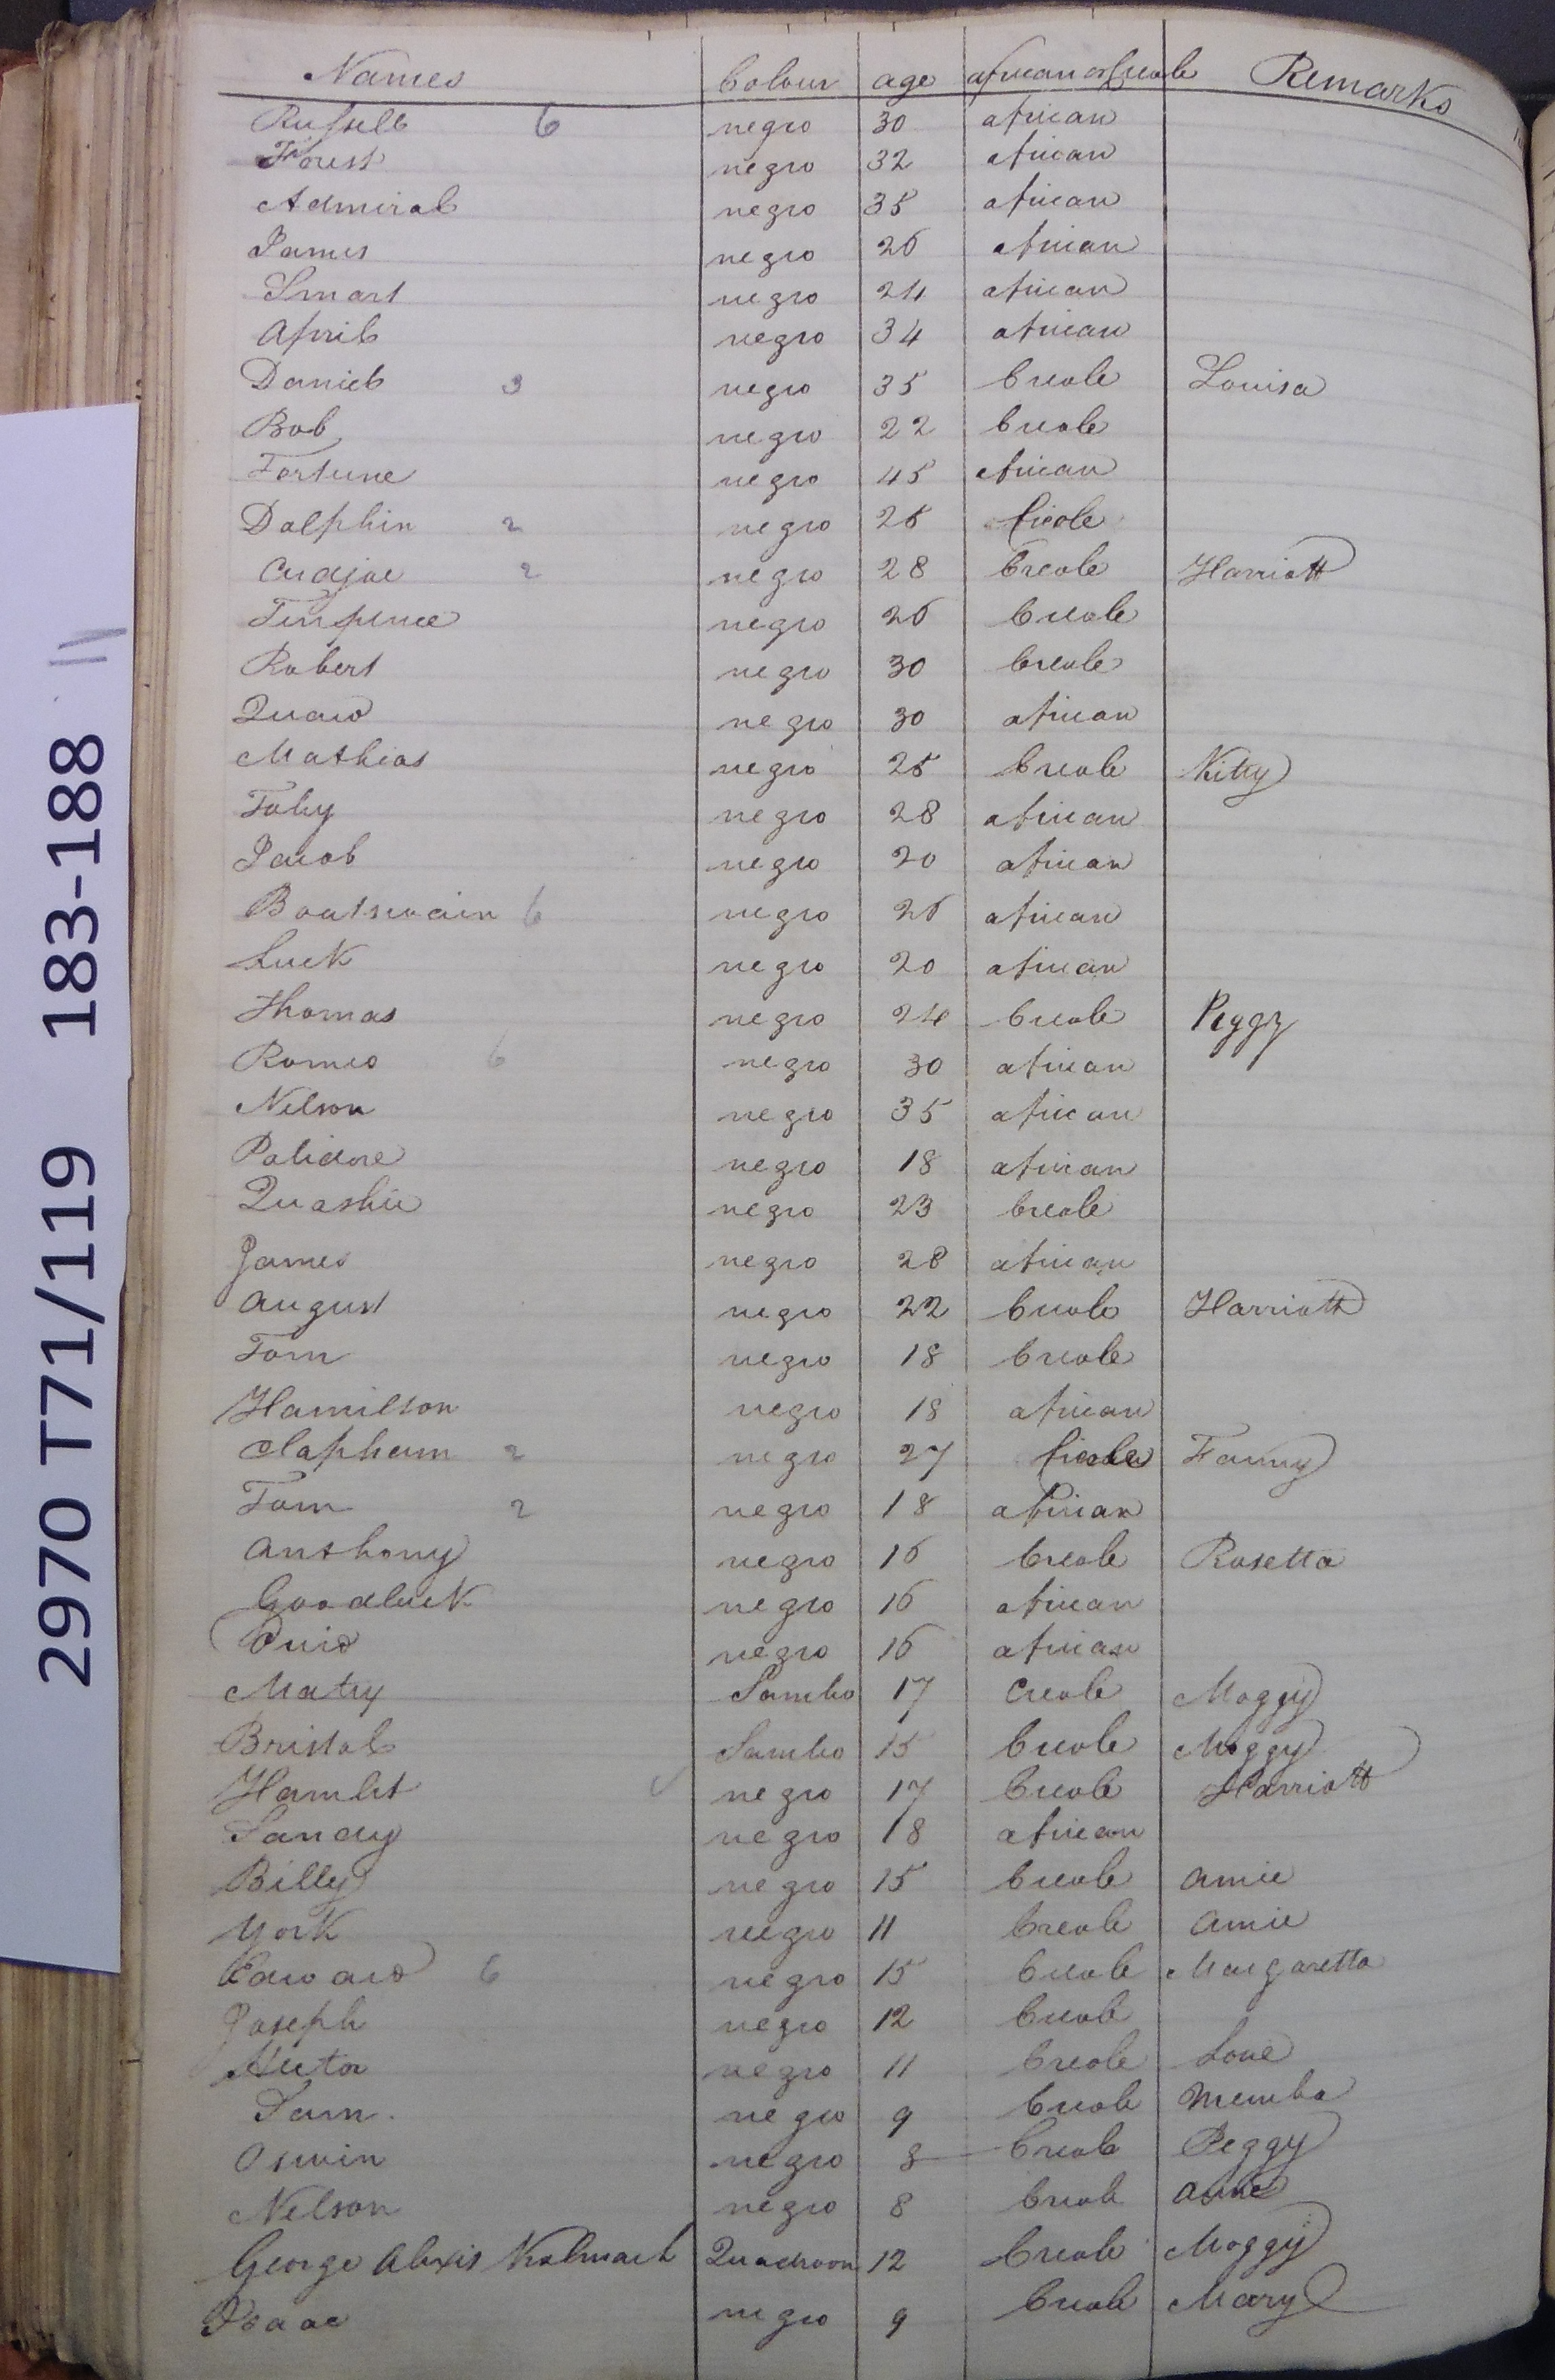 2970 T71/119 183-188
Names Colour age african or Creole Remarks
Russell 6 negro 30 african
Forest negro 32 african
Admiral negro 35 african
James negro 26 african
Smart negro 24 african
April negro 34 african
Daniel 3 negro 35 Creole Louisa
Bob negro 22 Creole
Fortune negro 45 african
Dolphin 2 negro 26 Creole
Cudjoe 2 negro 28 Creole Harriott
Tenpence negro 26 Creole
Robert negro 30 Creole
Quaw negro 30 african
Mathias negro 25 Creole Kitty
Toby negro 28 african
Jacob negro 20 african
Boatswain 6 negro 26 african
Luck negro 20 african
Thomas negro 24 Creole Peggy
Romeo 6 negro 30 african
Nelson negro 35 african
Polidore negro 18 african
Quashie negro 23 Creole
James negro 28 african
August negro 22 Creole Harriott
Tom negro 18 Creole
Hamilton negro 18 african
Clapham 2 negro 27 Creole Fanny
Tom 2 negro 18 african
Anthony negro 16 Creole Rosetta
Goodluck negro 16 african
negro 16 african
Matty Sambo 17 Creole Moggy
Bristol Sambo 15 Creole Moggy
Hamlet negro 17 Creole Harriott
Sandy negro 18 african
Billy negro 15 Creole Amie
York negro 11 Creole Amie
Edward 6 negro 15 Creole Margaretta
Joseph negro 12 Creole
Hector negro 11 Creole Love
Sam negro 9 Creole Memba
Oswin negro 8 Creole Peggy
Nelson negro 8 Creole
George Alexis negro Quadroon 12 Creole Moggy
Isaac negro 9 Creole Mary